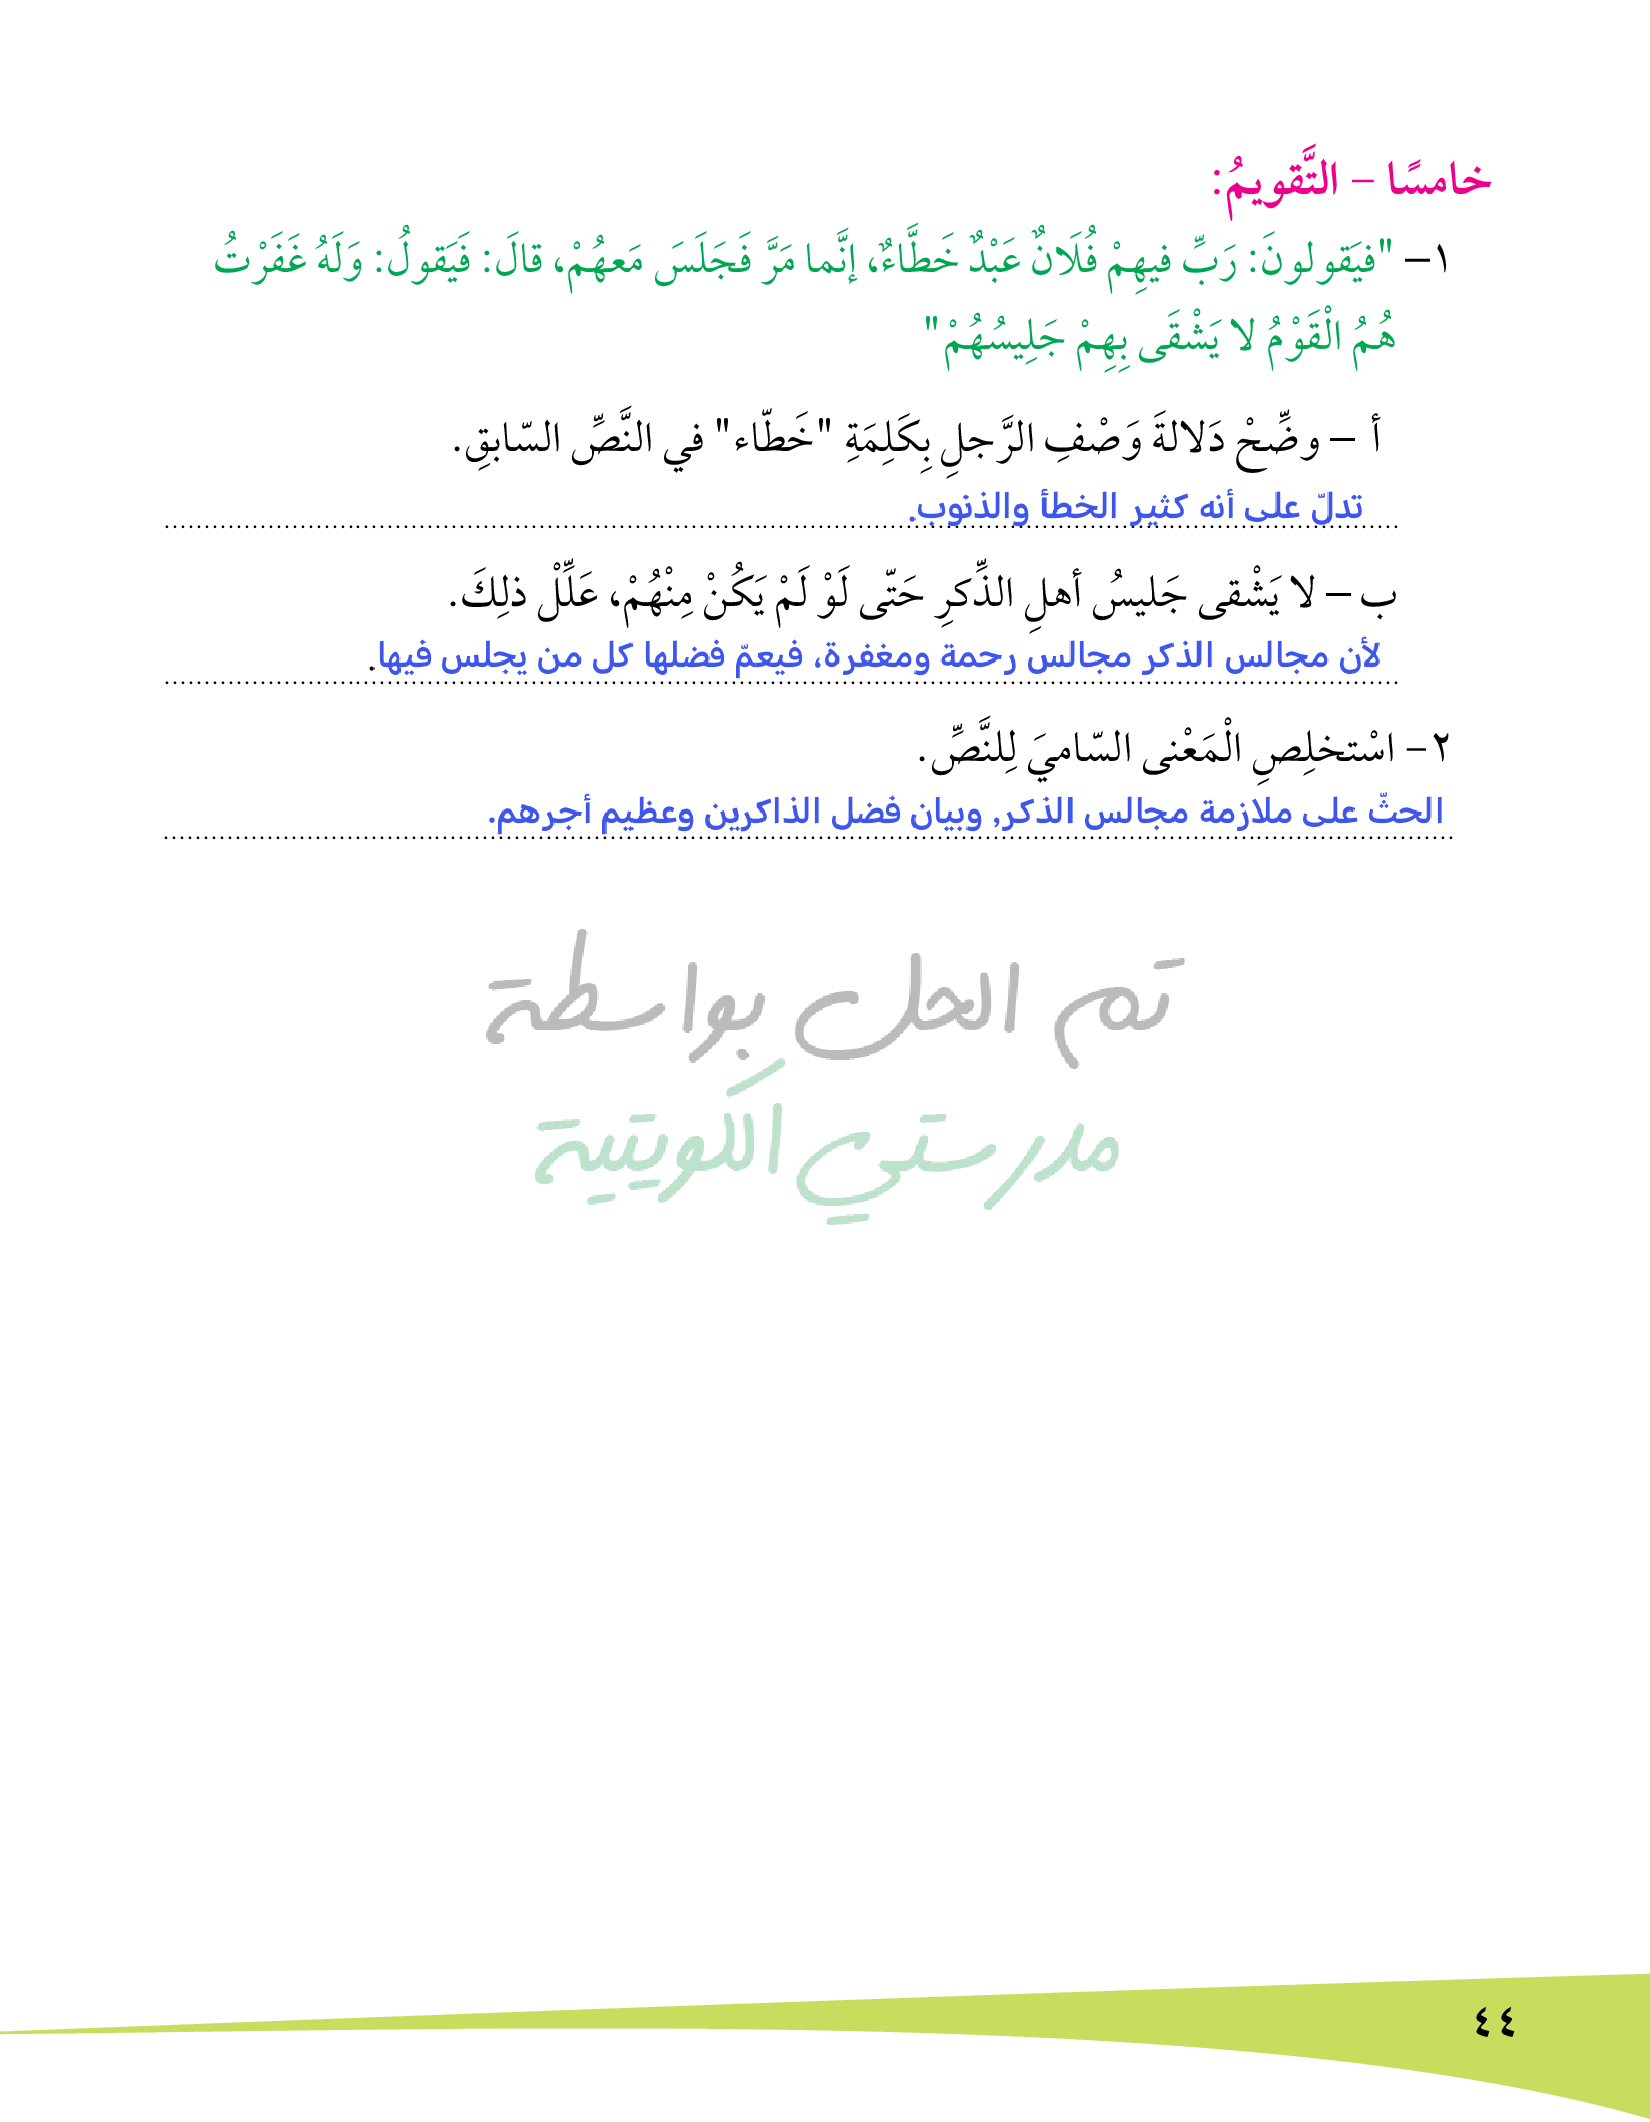 خامسًا – التَّقويمُ:
١– "فيَقولونَ: رَبِّ فيهِمْ فُلَانٌ عَبْدٌ خَطَّاءٌ، إنَّما مَرَّ فَجَلَسَ مَعهُمْ، قالَ: فَيَقولُ: وَلَهُ غَفَرْتُ
هُمُ الْقَوْمُ لا يَشْقَى بِهِمْ جَلِيسُهُمْ"
أ – وضِّحْ دَلالةَ وَصْفِ الرَّجلِ بِكَلِمَةِ "خَطّاء" في النَّصِّ السّابقِ.
تدلّ على أنه كثير الخطأ والذنوب.
ب – لا يَشْقى جَليسُ أهلِ الذِّكرِ حَتّى لَوْ لَمْ يَكُنْ مِنْهُمْ، عَلِّلْ ذلِكَ.
لأن مجالس الذكر مجالس رحمة ومغفرة، فيعمّ فضلها كل من يجلس فيها.
٢– اسْتخلِصِ الْمَعْنى السّاميَ لِلنَّصِّ.
الحثّ على ملازمة مجالس الذكر, وبيان فضل الذاكرين وعظيم أجرهم.
تم الحل بواسطة
مدرستي الكويتية
٤٤